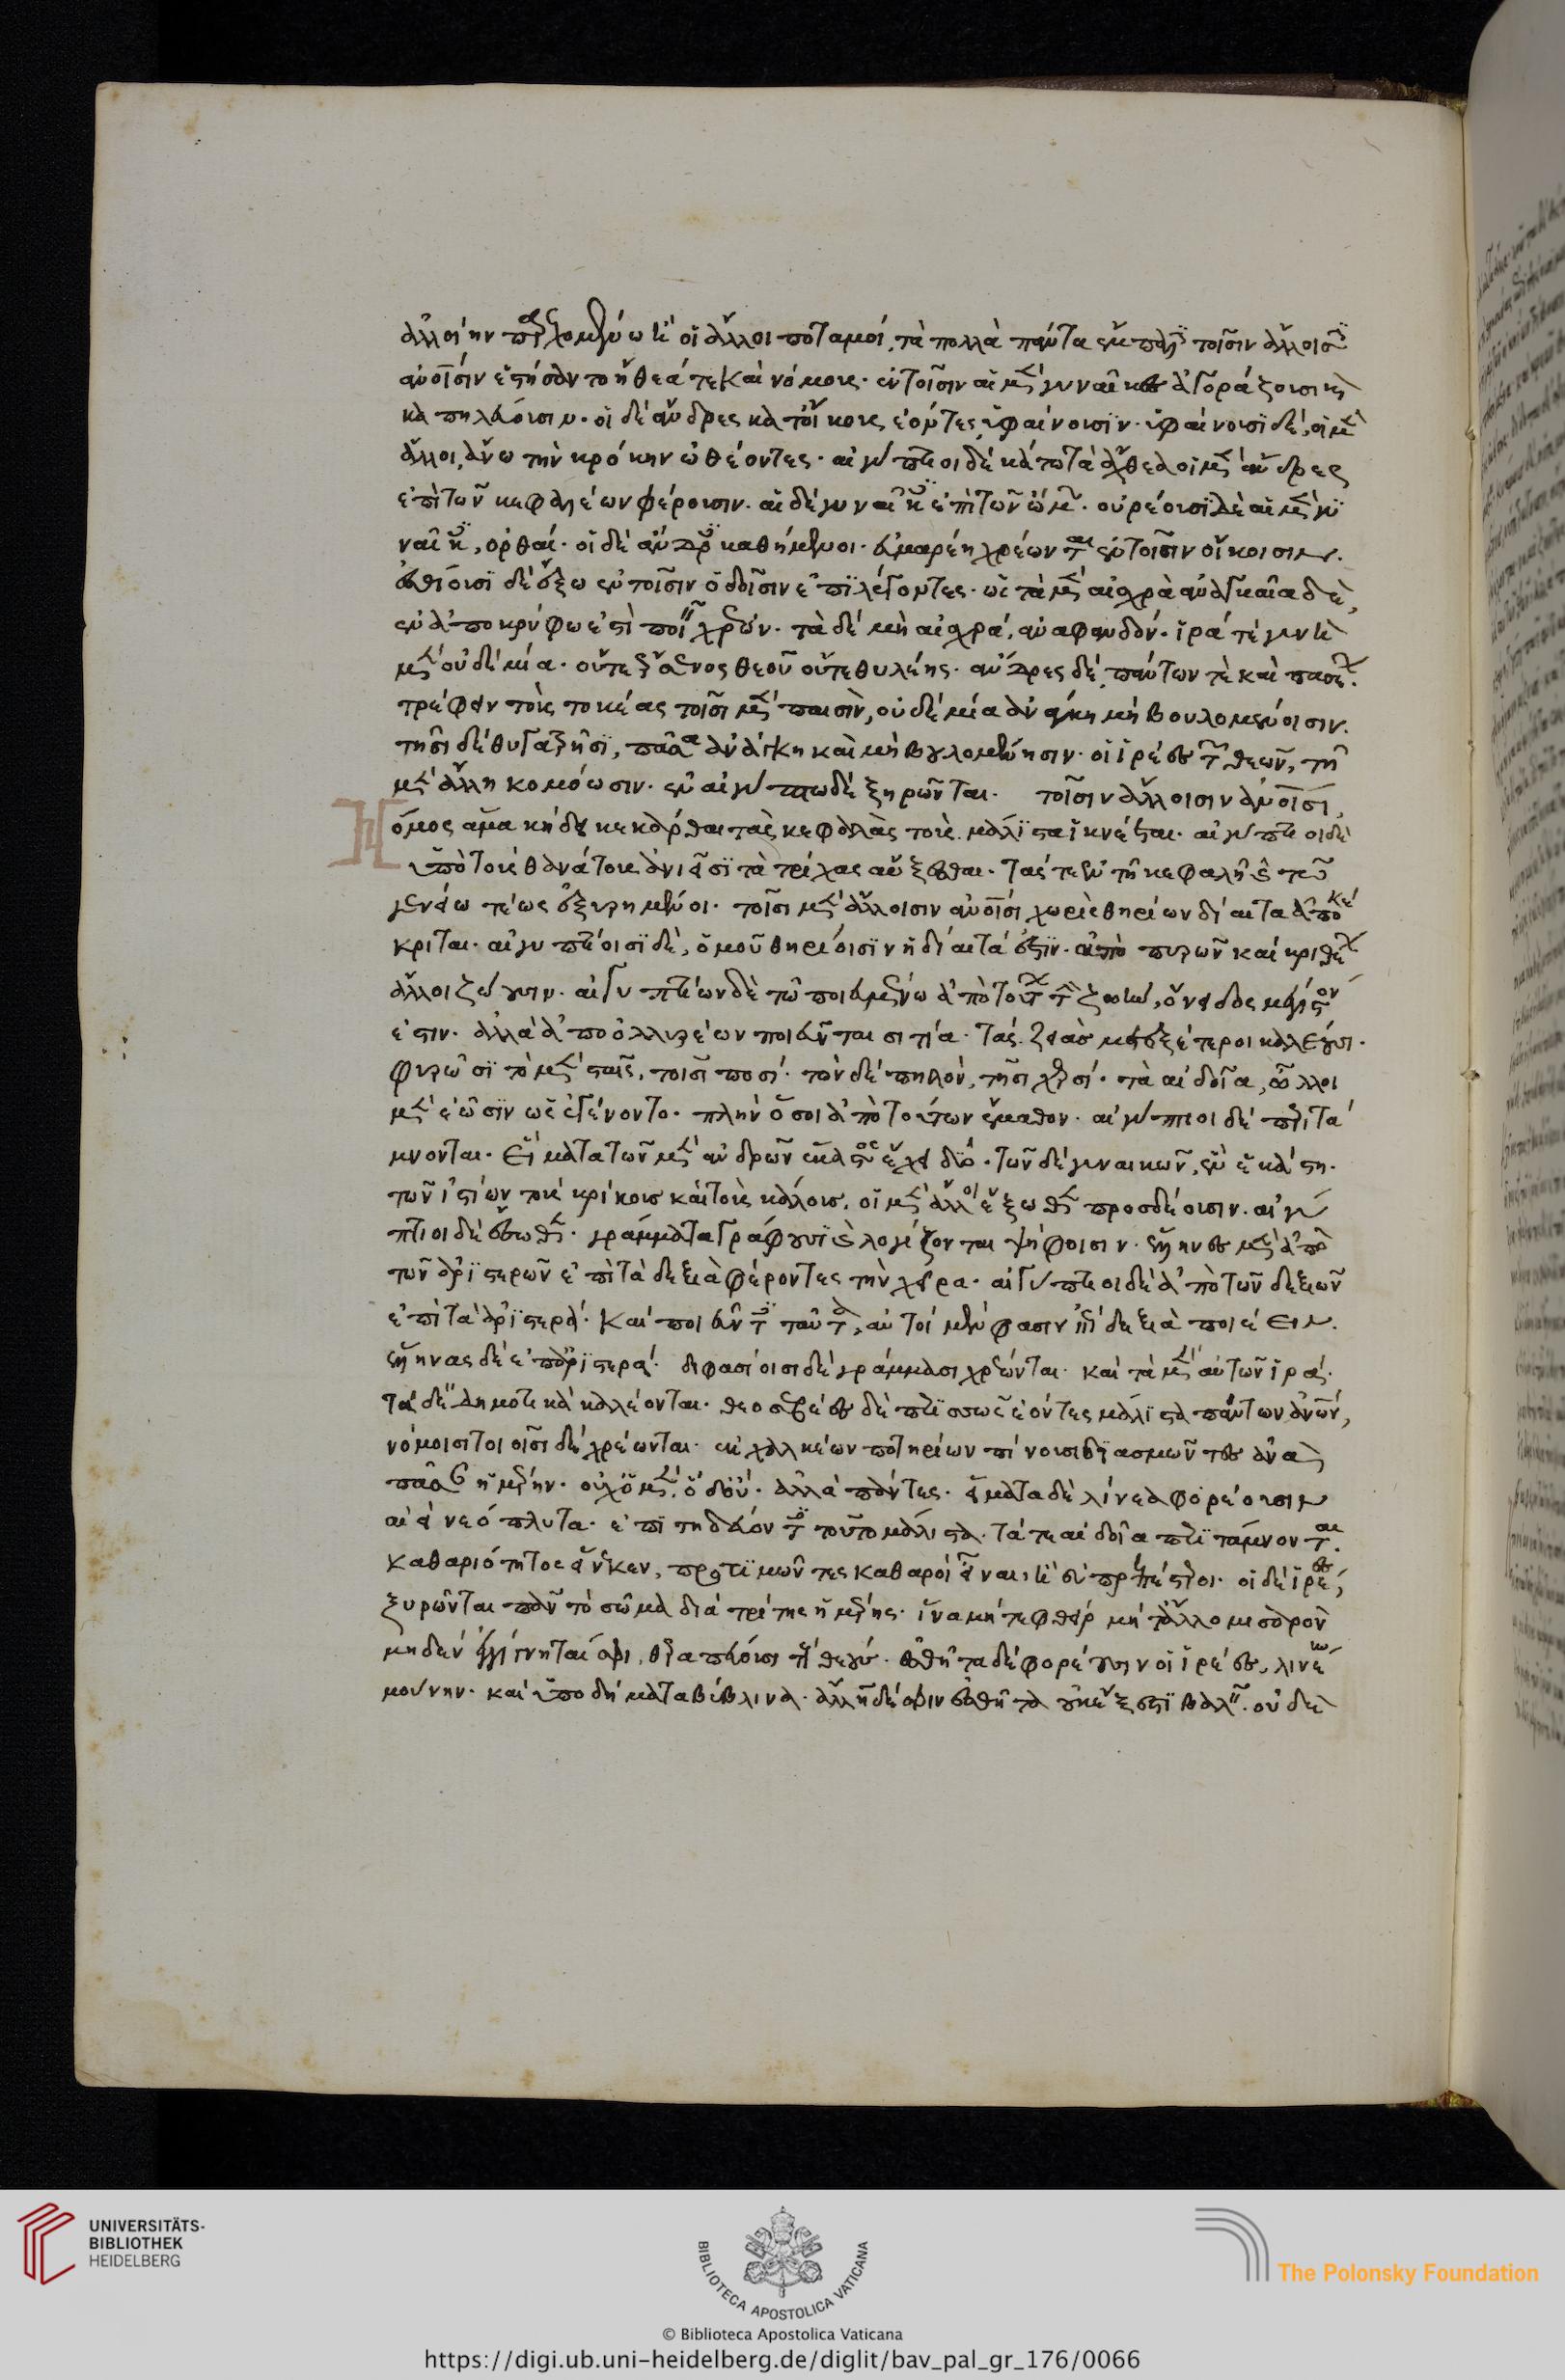 ἀλλοίην παρεχομένω ἢ οἱ ἄλλοι ποταμοί, τὰ πολλὰ πάντα ἔμπαλι τοῖσιν ἄλλοισι
ἀνοῖσιν ἐστήσαντο ἤθεά τε καὶ νόμους· ἐν τοῖσιν αἱ μὲν γυναῖκες ἀγοράζουσι καὶ
καπηλεύουσιν· οἱ δὲ ἄνδρες κατ' οἴκους ἐόντες ὑφαίνουσιν· ὑφαίνουσι δὲ, οἱ μὲν
ἄλλοι, ἄνω τὴν κρόκην ὠθέοντες· αἰγύπτιοι δὲ κάτω τὰ ἄχθεα οἱ μὲν ἄνδρες
ἐπὶ τῶν κεφαλέων φέρουσιν· αἱ δὲ γυναῖκες ἐπὶ τῶν ὤμων· οὐρέουσι δὲ αἱ μὲν γυ
ναῖκες, ὀρθαί· οἱ δὲ ἄνδρες καθήμενοι· εὐμαρέῃ χρέωνται ἐν τοῖσιν οἴκοισιν.
ἐσθίουσι δὲ ἔξω ἐν τοῖσιν ὁδοῖσιν ἐπιλέγοντες· ὡς τὰ μὲν αἰσχρὰ ἀναγκαῖα δὲ,
ἐν ἀποκρύφω ἐστὶ ποιέειν χρεών· τὰ δὲ μὴ αἰσχρά, ἀναφανδόν· ἱρᾶται γυνὴ
μὲν οὐδεμία· οὔτε ἔρσενος θεοῦ οὔτε θυλέης· ἄνδρες δὲ, πάντων τε καὶ πασέων.
τρέφειν τοὺς τοκέας τοῖσι μὲν παισὶν, οὐδεμία ἀνάγκη μὴ βουλομένοισιν.
τῆσι δὲ θυγατρῆσι, πᾶσα ἀνάγκη καὶ μὴ βουλομένησιν· οἱ ἱρέες τῶν θεῶν, τῇ
μὲν ἄλλη κομόωσιν· ἐν αἰγύπτω δὲ ξηρῶνται. τοῖσιν ἄλλοισιν ἀνοῖσι,
Νόμος ἅμα κήδει κεκάρθαι τὰς κεφαλὰς τοὺς μάλιστα ἱκνέεται· αἰγύπτιοι δὲ
ὑπὸ τοὺς θανάτους ἀνιεῖσι τὰς τρίχας αὔξεσθαι· τάς τε ἐν τῇ κεφαλῇ καὶ τῶ
γενείω τέως ἐξυρημένοι· τοῖσι μὲν ἄλλοισιν ἀνοῖσι χωρὶς θηρίων δίαιτα ἀποκέ
κριται· αἰγυπτίοισι δὲ, ὁμοῦ θηρίοισιν ἡ δίαιτά ἐστιν· ἀπὸ πυρῶν καὶ κριθέων
ἄλλοι ζώουσιν· αἰγυπτίων δὲ τῶ ποιευμένω ἀπὸ τουτέων τὴν ζωὴν, ὄνειδος μέγιστον
ἐστιν· ἀλλὰ ἀπὸ ὀλλυρέων ποιεῦνται σιτία· τὰς ζειὰς μετεξέτεροι καλέουσι·
φυρῶσι τὸ μὲν σταῖς, τοῖσι ποσί· τὸν δὲ πηλόν, τῇσι χερσί· τὰ αἰδοῖα, ὧλλοι
μὲν ἐῶσιν ὡς ἐγένοντο· πλὴν ὅσοι ἀπὸ τούτων ἔμαθον· αἰγύπτιοι δὲ περιτά
μνονται· Εἵματα τῶν μὲν ἀνδρῶν ἕκαστος ἔχει δύο· τῶν δὲ γυναικῶν, ἓν ἑκάστη·
τῶν ἱστίων τοὺς κρίκους καὶ τοὺς κάλους, οἱ μὲν ἄλλοι ἔξωθεν προσδέουσιν· αἰγύ
πτιοι δὲ ἔσωθεν· γράμματα γράφουσι καὶ λογίζονται ψήφοισιν· ἕλληνες μὲν ἀπὸ
τῶν ἀριστερῶν ἐπὶ τὰ δεξιὰ φέροντες τὴν χεῖρα· αἰγύπτιοι δὲ ἀπὸ τῶν δεξιῶν
ἐπὶ τὰ ἀριστερά· Καὶ ποιεῦντες ταῦτα, αὐτοὶ μέν φασιν ἐπὶ δεξιὰ ποιέειν.
ἕλληνας δὲ ἐπ' ἀριστερά· διφασίοισι δὲ γράμμασι χρέωνται· καὶ τὰ μὲν αὐτῶν ἱρά·
τὰ δὲ δημοτικὰ καλέονται· θεοσεβέες δὲ περισσῶς ἐόντες μάλιστα πάντων ἀνῶν,
νόμοισι τοιοῖσι δὲ χρέωνται· ἐκ χαλκέων ποτηρίων πίνουσι διασμῶντες ἀνὰ
πᾶσαν ἡμέρην· οὐχ ὃ μὲν, ὃ δ' οὔ· ἀλλὰ πάντες· εἵματα δὲ λίνεα φορέουσιν
αἰεὶ νεόπλυτα· ἐπιτηδεύοντες τοῦτο μάλιστα· τά τε αἰδοῖα περιτάμνονται.
καθαριότητος εἵνεκεν, προτιμῶντες καθαροὶ εἶναι, ἢ εὐπρεπέστεροι· οἱ δὲ ἱρέες,
ξυρῶνται πᾶν τὸ σῶμα διὰ τρίτης ἡμέρης· ἵνα μήτε φθεὶρ μήτ' ἄλλο μυσαρὸν
μηδὲν ἐγγίγνηταί σφι, θεραπεύουσι τοὺς θεούς· ἐσθῆτα δὲ φορέουσιν οἱ ἱρέες, λινέην
μούνην· καὶ ὑποδήματα βύβλινα· ἄλλην δέ σφιν ἐσθῆτα οὐκ ἔξεστι βαλεῖν· οὐδὲ
UNIVERSITÄTS-
BIBLIOTHEK
HEIDELBERG
BIBLIOTECA APOSTOLICA VATICANA
The Polonsky Foundation
© Biblioteca Apostolica Vaticana
https://digi.ub.uni-heidelberg.de/diglit/bav_pal_gr_176/0066